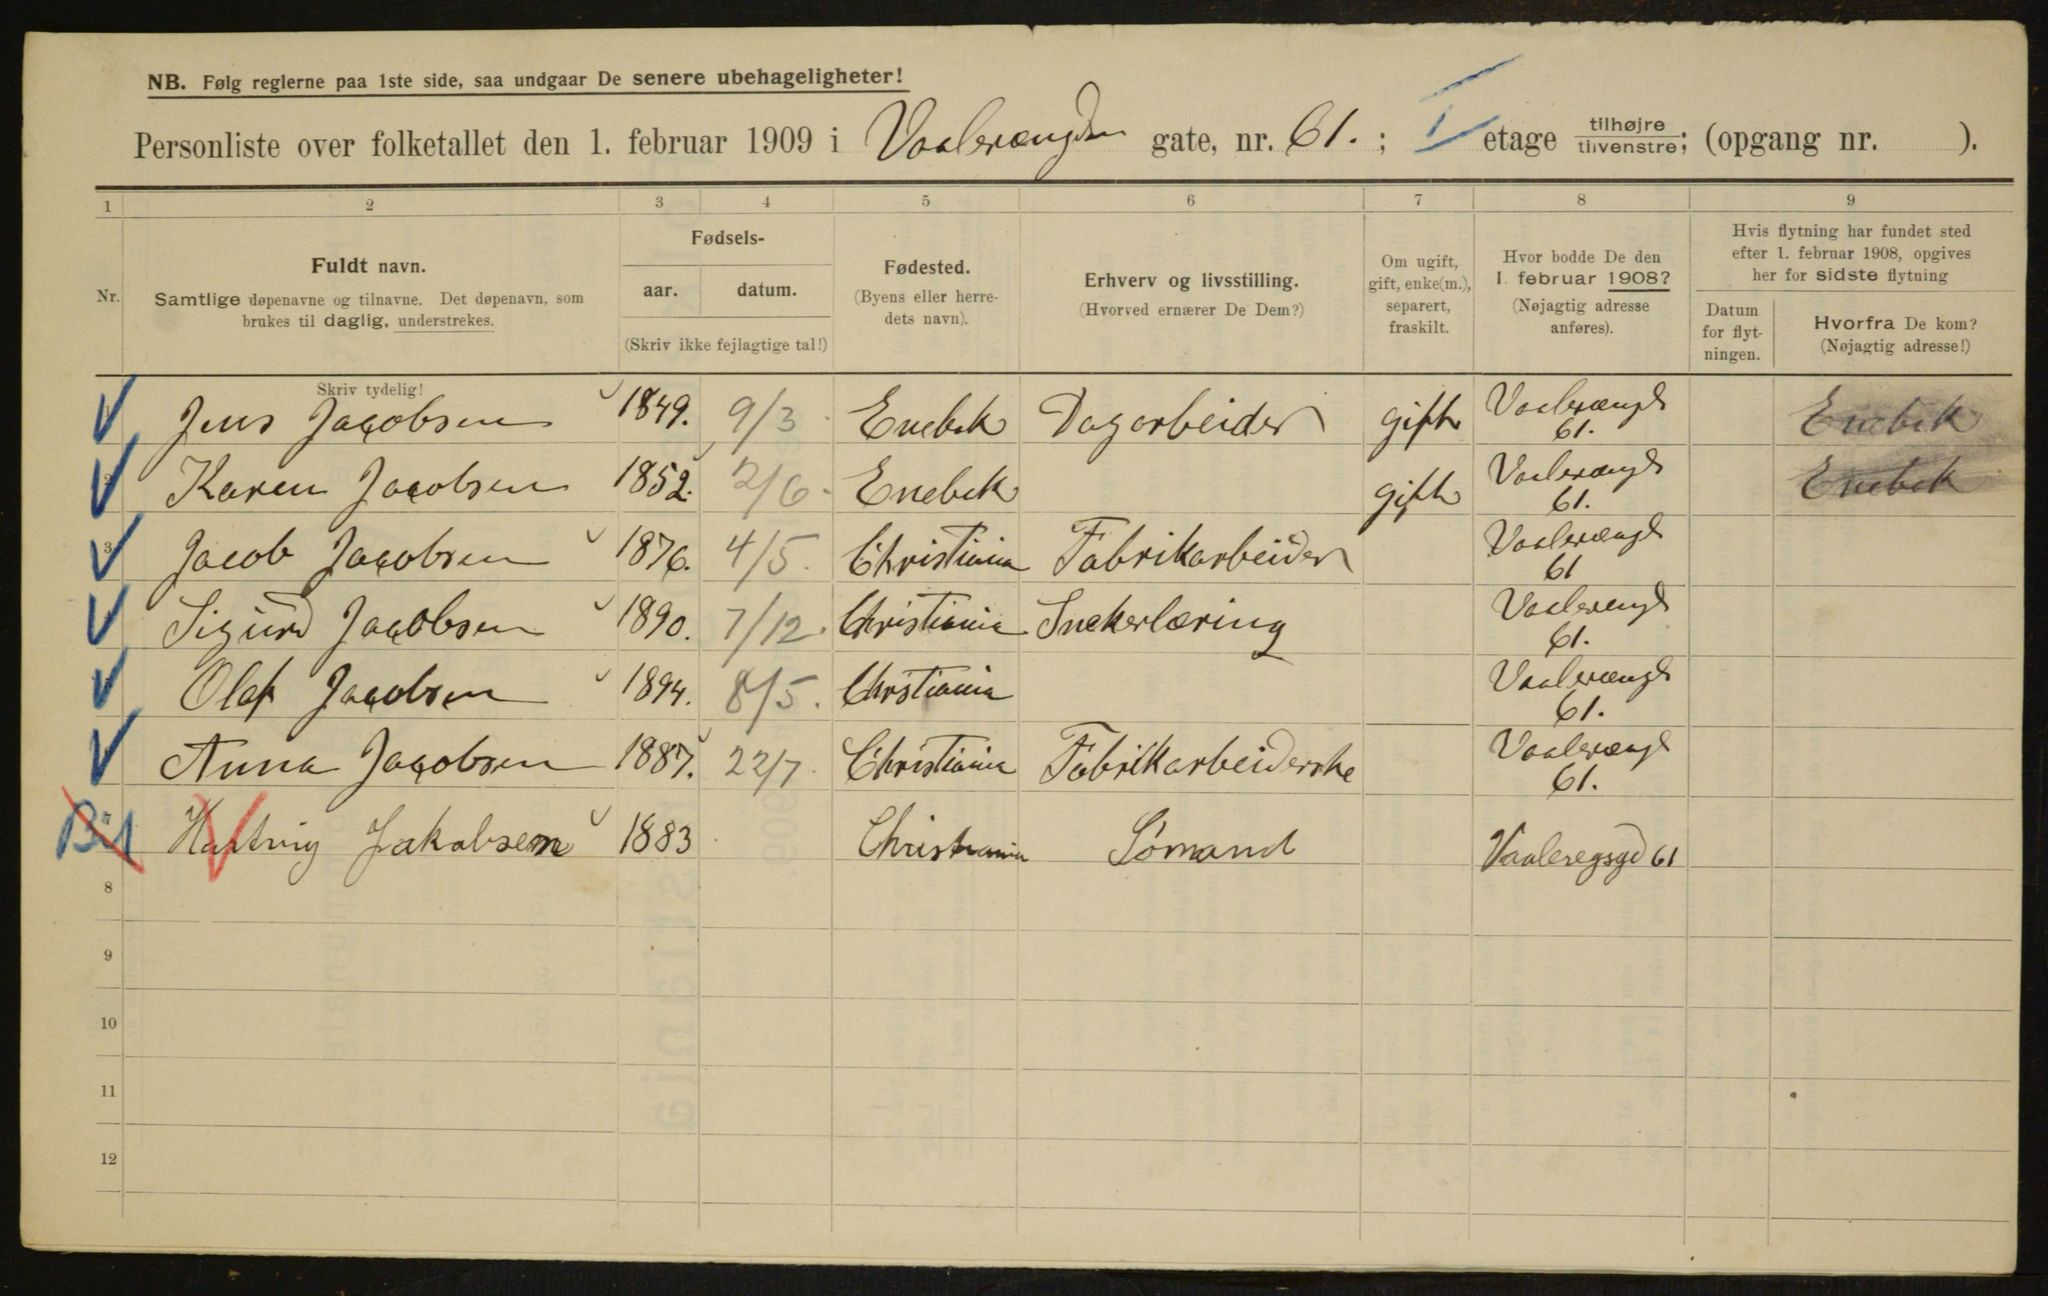 NB. Følg reglerne paa 1ste side, saa undgaar De senere ubehageligheter!
Personliste over folketallet den 1. februar 1909 i Vaalerængdn gate, nr. 61. ; I etage tilhøjre tilvenstre; (opgang nr. ).
1 2 3 4 5 6 7 8 9
Nr. Fuldt navn. Samtlige døpenavne og tilnavne. Det døpenavn, som brukes til daglig, understrekes. Skriv tydelig!
Fødsels- aar. datum. (Skriv ikke fejlagtige tal!)
Fødested. (Byens eller herredets navn).
Erhverv og livsstilling. (Hvorved ernærer De Dem?)
Om ugift, gift, enke(m.), separert, fraskilt.
Hvor bodde De den 1. februar 1908? (Nøjagtig adresse anføres).
Hvis flytning har fundet sted efter 1. februar 1908, opgives her for sidste flytning
Datum for flytningen. Hvorfra De kom? (Nøjagtig adresse!)
Jens Jacobsen 1849. 9/3 Enebak Dagarbeider gift Vaalerængt 61. Enebak
2 Karen Jacobsen 1852. 2/6 Enebak gift Vaalerængt 61. Enebak
3 Jacob Jacobsen 1876. 4/5. Christiania Fabrikarbeider Vaalerængt 61
Sigurd Jacobsen 1890. 7/12. Christiania Snekerlæring Vaalerengt 61.
Olaf Jacobsen 1894. 8/5. Chrstiania Vaalerængt 61.
Anna Jacobsen 1887. 22/7. Christiania Fabrikarbeiderske Vaalerængt 61.
Hartvig Jakobsen 1883 Christiania Sømand Vaaleregsgd 61
8
9
10
11
12